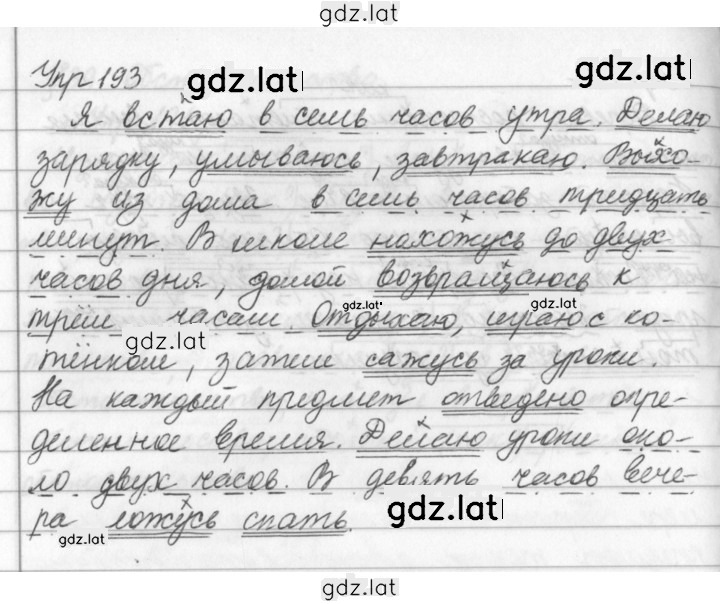 gdz.lat
Упр 193
gdz.lat
gdz.lat
Я встаю в семь часов утра. Делаю
зарядку, умываюсь, завтракаю. Выхо-
жу из дома в семь часов тридцать
минут. В школе нахожусь до двух
часов дня, домой возвращаюсь к
gdz.lat
gdz.lat
трём часам. Отдыхаю, играю с ко-
gdz.lat
тёнком, затем сажусь за уроки.
На каждый предмет отведено опре-
деленное время. Делаю уроки око-
ло двух часов. В девять часов вече-
ра ложусь спать.
gdz.lat
gdz.lat
gdz.lat